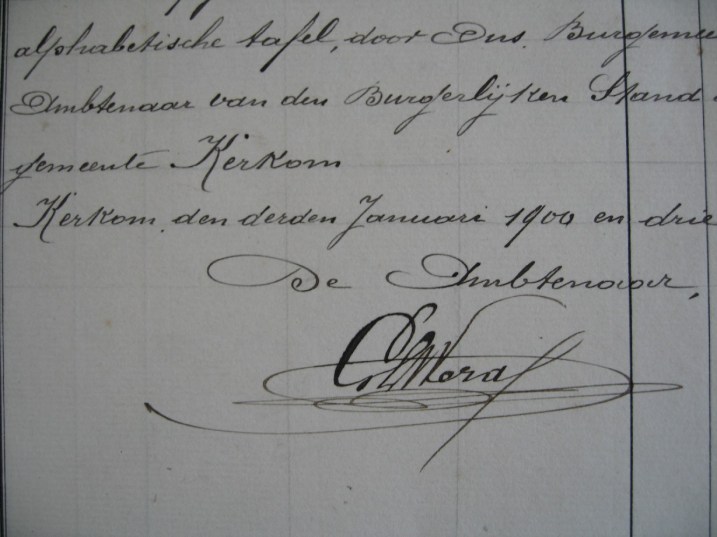 alphabetische tafel, door Ons, Burgemee
Ambtenaar van den Burgerlijken Stand
gemeente Kerkom
Kerkom, den derden Januari 1900 en drie
De Ambtenaar,